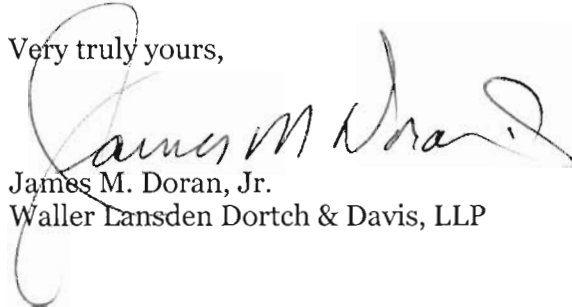 Very truly yours,
James M Doran Jr.
James M. Doran, Jr.
Waller Lansden Dortch & Davis, LLP